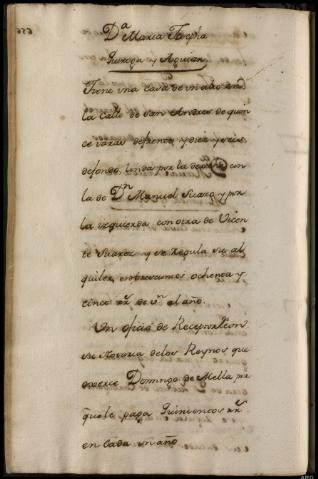 Dª Maria Josepha
Tiene una Casa de un alto en
la Calle de san Andres de quin
ce varas de frente y diez y seis
de fondo, linda por la derecha con
la de Dn Manuel Suarez y por
la izquierda con otra de Vicen
te Suarez y se regula su al
quiler en trescientos ochenta y
cinco rs de vn el año.
Un oficio de Receptor con
su Notaria de los Reynos que
exerce Domingo de Mella por
que le paga Quinientos rs
en cada un año